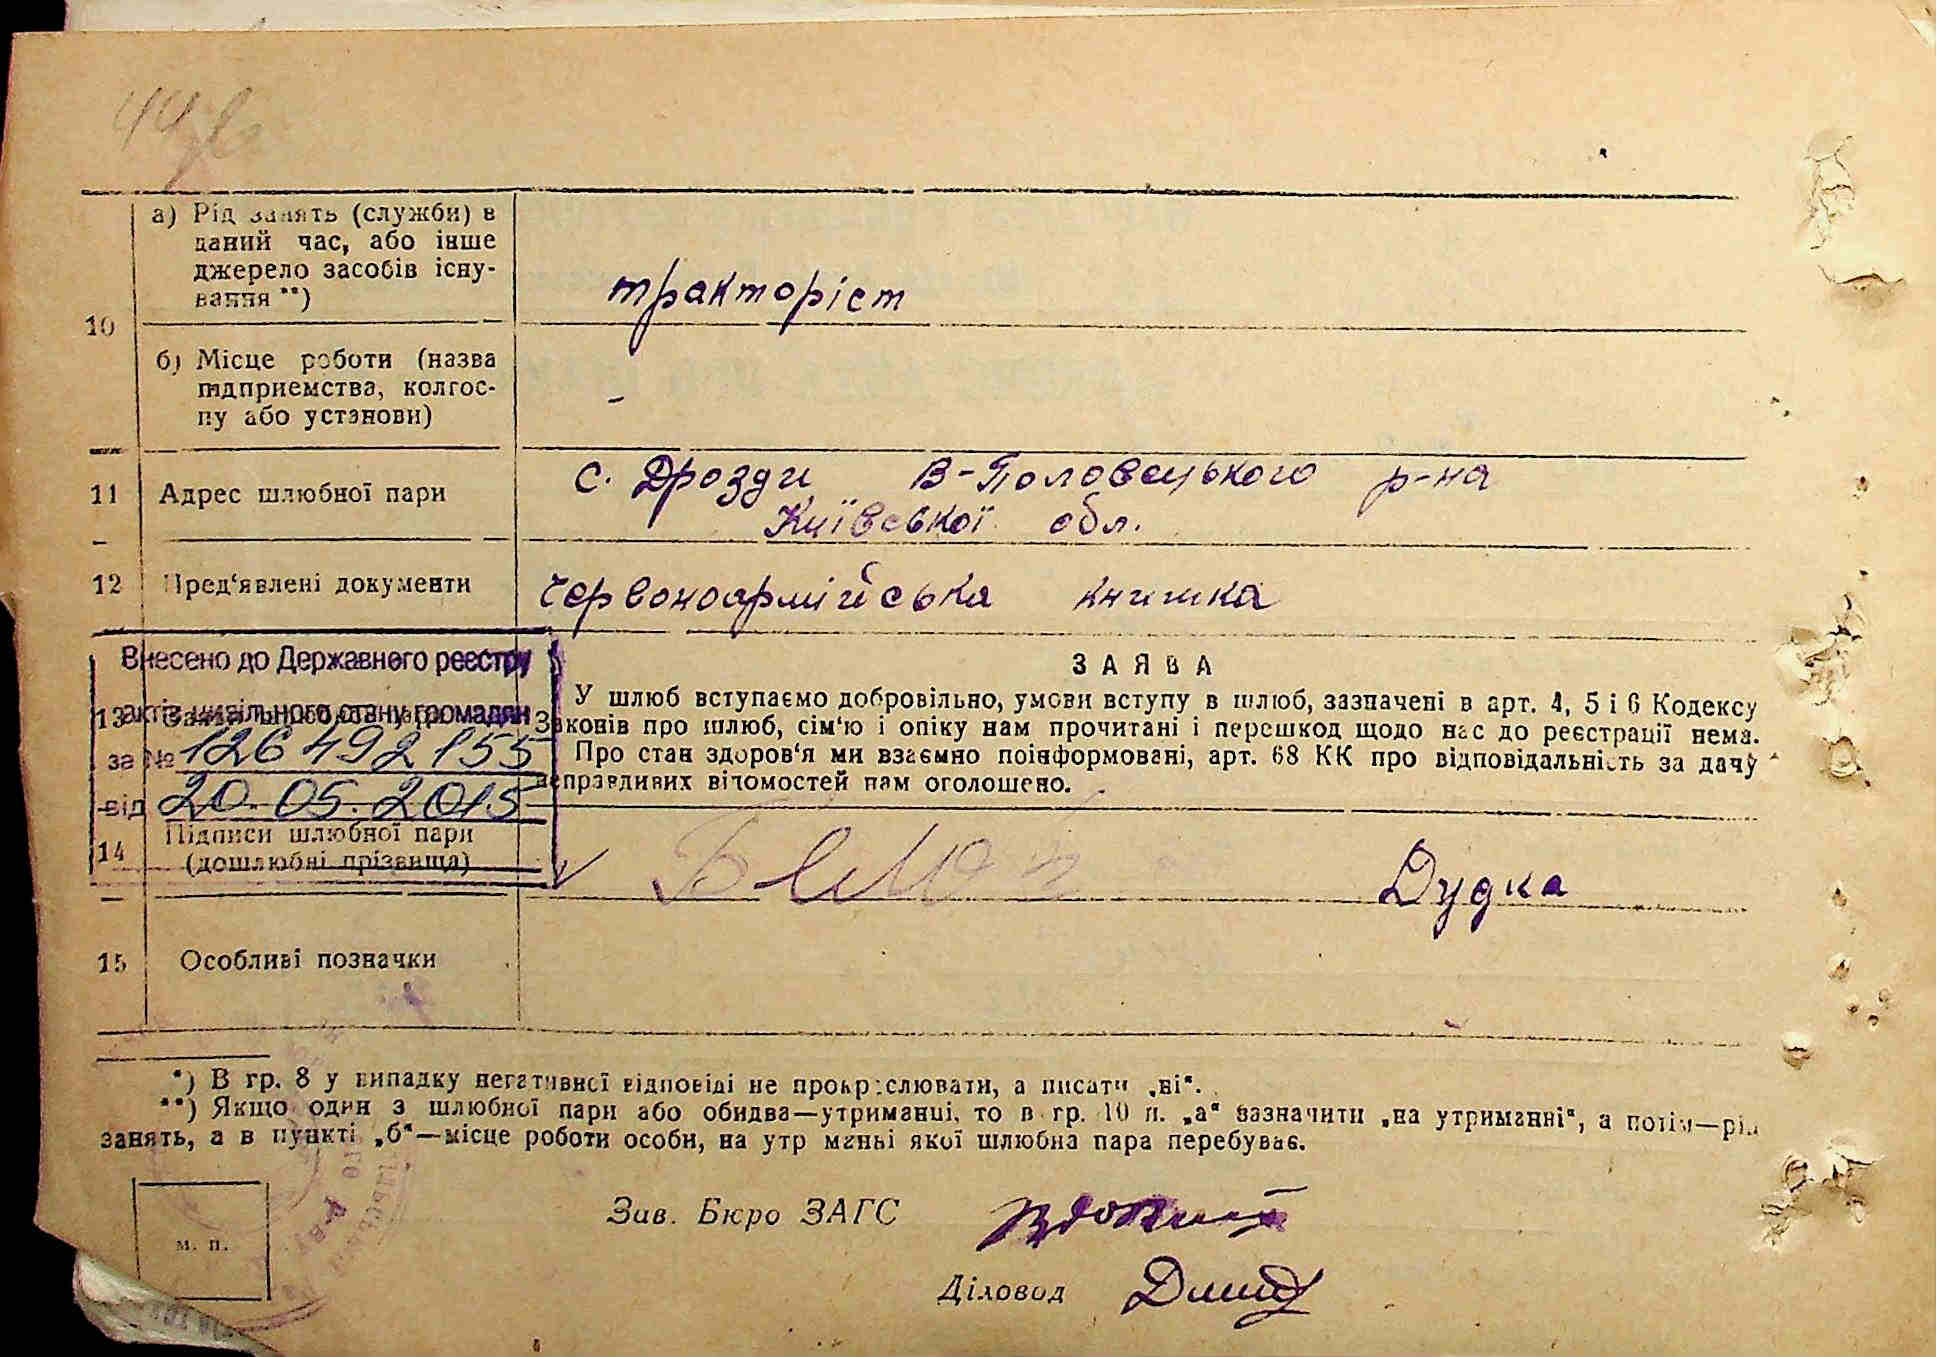 10 а) Рід занять (служби) в
даний час, або інше
джерело засобів існу-
вання **)
тракторіст
б) Місце роботи (назва
підприємства, колгос-
пу або установи)
-
11 Адрес шлюбної пари
с. Дрозди В-Половецького р-на
Київської обл.
12 Пред‘явлені документи
Червоноармійська книжка
Внесено до Державного реєстру
актів цивільного стану громадян
за № 126492155
від 20.05.2015
13
ЗАЯВА
У шлюб вступаємо добровільно, умови вступу в шлюб, зазначені в арт. 4, 5 і 6 Кодексу
Законів про шлюб, сім‘ю і опіку нам прочитані і перешкод щодо нас до реєстрації нема.
Про стан здоров‘я ми взаємно поінформовані, арт. 68 КК про відповідальність за дачу
неправдивих відомостей нам оголошено.
14 Підписи шлюбної пари
(дошлюбні прізвища)
Дудка
15 Особливі позначки
*) В гр. 8 у випадку негативної відповіді не прокреслювати, а писати „ні“.
**) Якщо один з шлюбної пари або обидва—утриманці, то в гр. 10 п. „а“ зазначити „на утриманні“, а потім—рід
занять, а в пункті „б“—місце роботи особи, на утриманні якої шлюбна пара перебуває.
м. п.
Зав. Бюро ЗАГС
Діловод